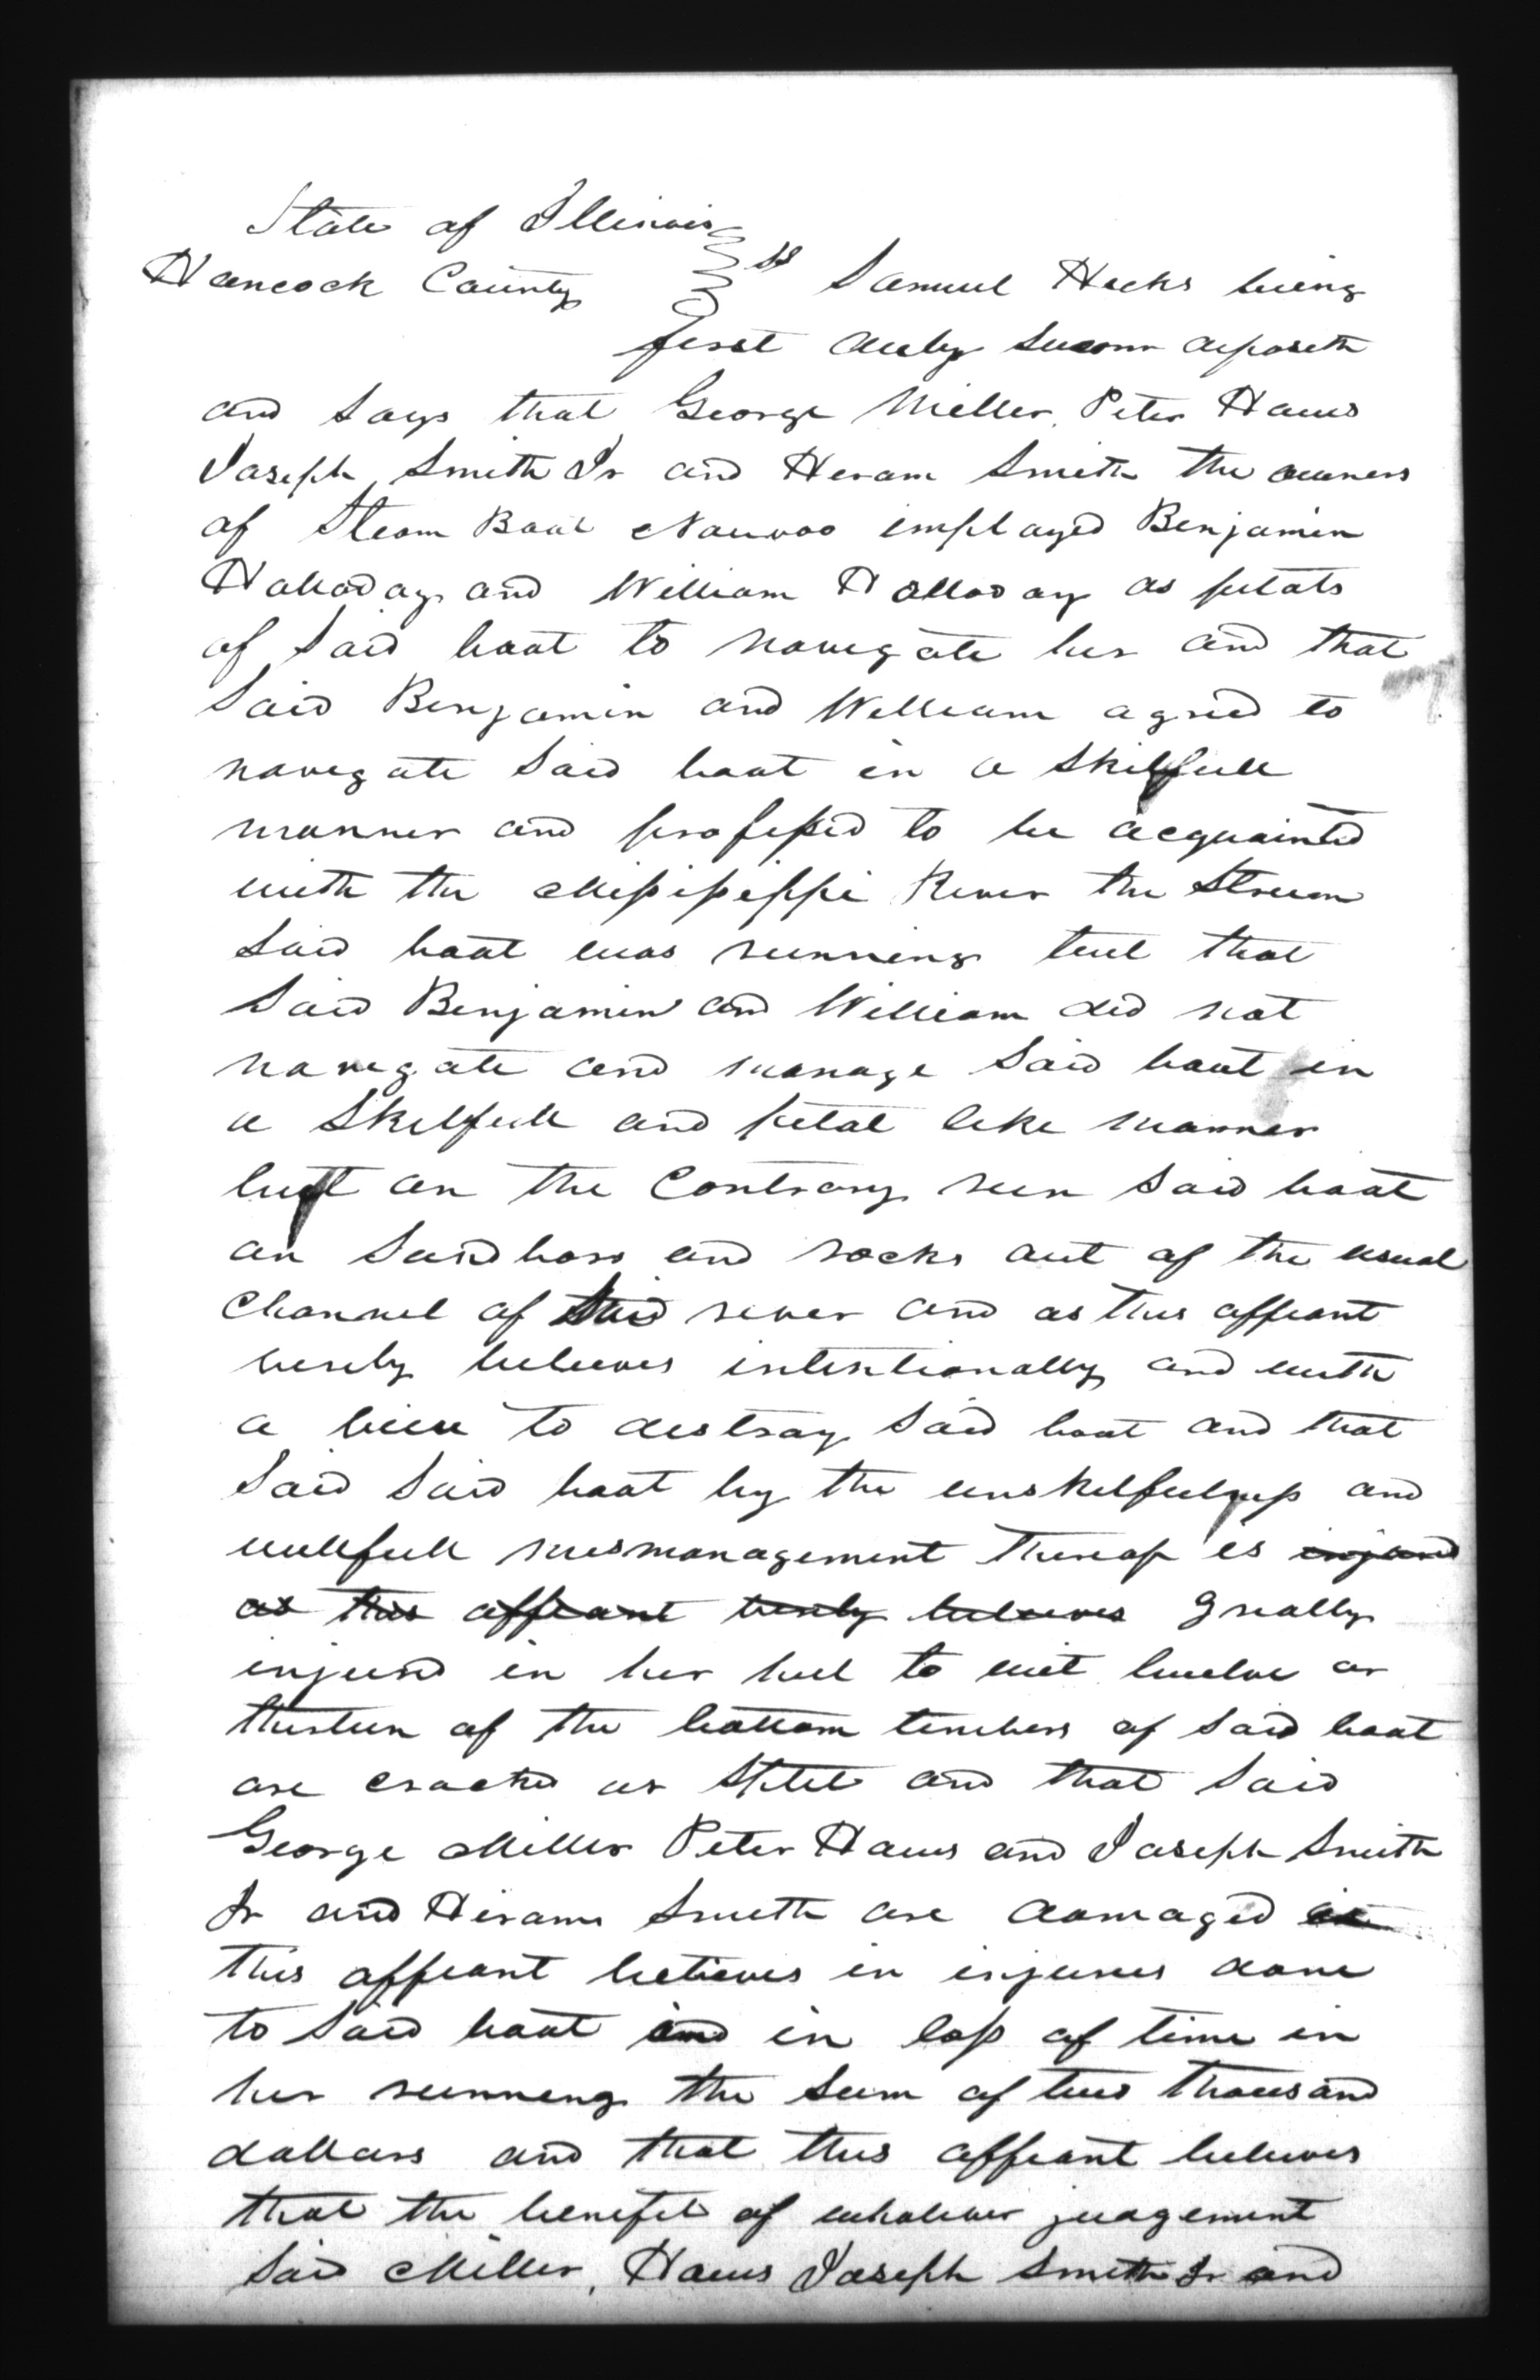 State of Illinois
Hancock County ss Samuel Hicks being
first duly sworn deposeth
and says that George Miller, Peter Haws
Joseph Smith Jr and Hiram Smith the owners
of Steam Boat Nauvoo employed Benjamin
Holladay and William Holladay as pilots
of said boat to navigate her and that
said Benjamin and William agreed to
navigate said boat in a skilfull
manner and professed to be acquainted
with the Mississippi River the Stream
said boat was running but that
said Benjamin and William did not
navigate and manage said boat in
a skilfull and pilot like manner
but on the Contrary run said boat
on sandbars and rocks out of the usual
channel of said river and as this affiant
verily believes intentionally and with
a view to destroy said boat and that
said said boat by the unskilfulness and
willfull mismanagement thereof is injured
as this affiant verily believes greatly
injured in her hul to wit twelve or
thirteen of the bottom timbers of said boat
are cracked or split and that said
George Miller Peter Haws and Joseph Smith
Jr and Hiram Smith are damaged
this affiant believes in injuries done
to said boat and in loss of time in
her running the sum of two thousand
dollars and that this affiant believes
that the benefit of whatever judgement
said Miller, Haws Joseph Smith Jr and